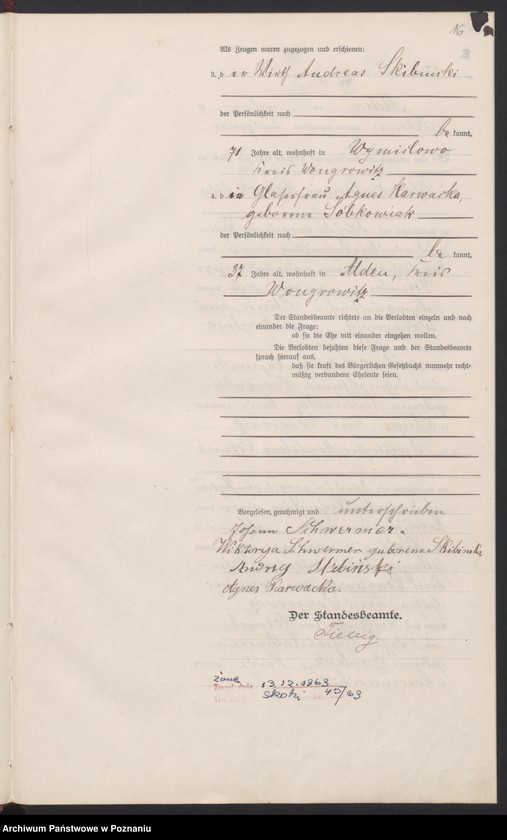 16
Als Zeugen waren zugezogen und erschienen:
3. der Wirth Andreas Skibinski
der Persönlichkeit nach
be kannt,
71 Jahre alt, wohnhaft in Wymislowo
Kreis Wongrowitz
4. die Glaserfrau Agnes Karwacka,
geborene Sobkowiak
der Persönlichkeit nach
be kannt,
37 Jahre alt, wohnhaft in Alden, Kreis
Wongrowitz
Der Standesbeamte richtete an die Verlobten einzeln und nach
einander die Frage:
ob sie die Ehe mit einander eingehen wollen.
Die Verlobten bejahten diese Frage und der Standesbeamte
sprach hierauf aus,
daß sie kraft des Bürgerlichen Gesetzbuchs nunmehr recht-
mäßig verbundene Eheleute seien.
Vorgelesen, genehmigt und unterschrieben
Johann Schwermer.
Wiktorya Schwermer geborene Skibinska
Andrzy
Agnes Karwacka.
Der Standesbeamte.
żona
13.12.1963
Skoki 45/63
Archiwum Państwowe w Poznaniu